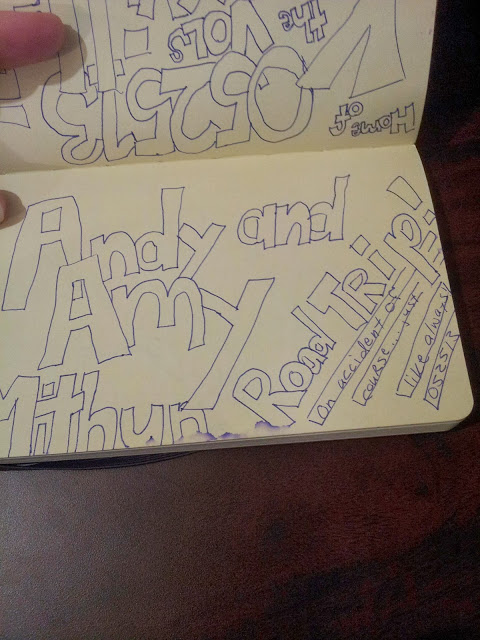 Home of
052513
the
VOLS
Andy and
Amy
Mithun
Road Trip!
On accident of
course... just
like always!
052513